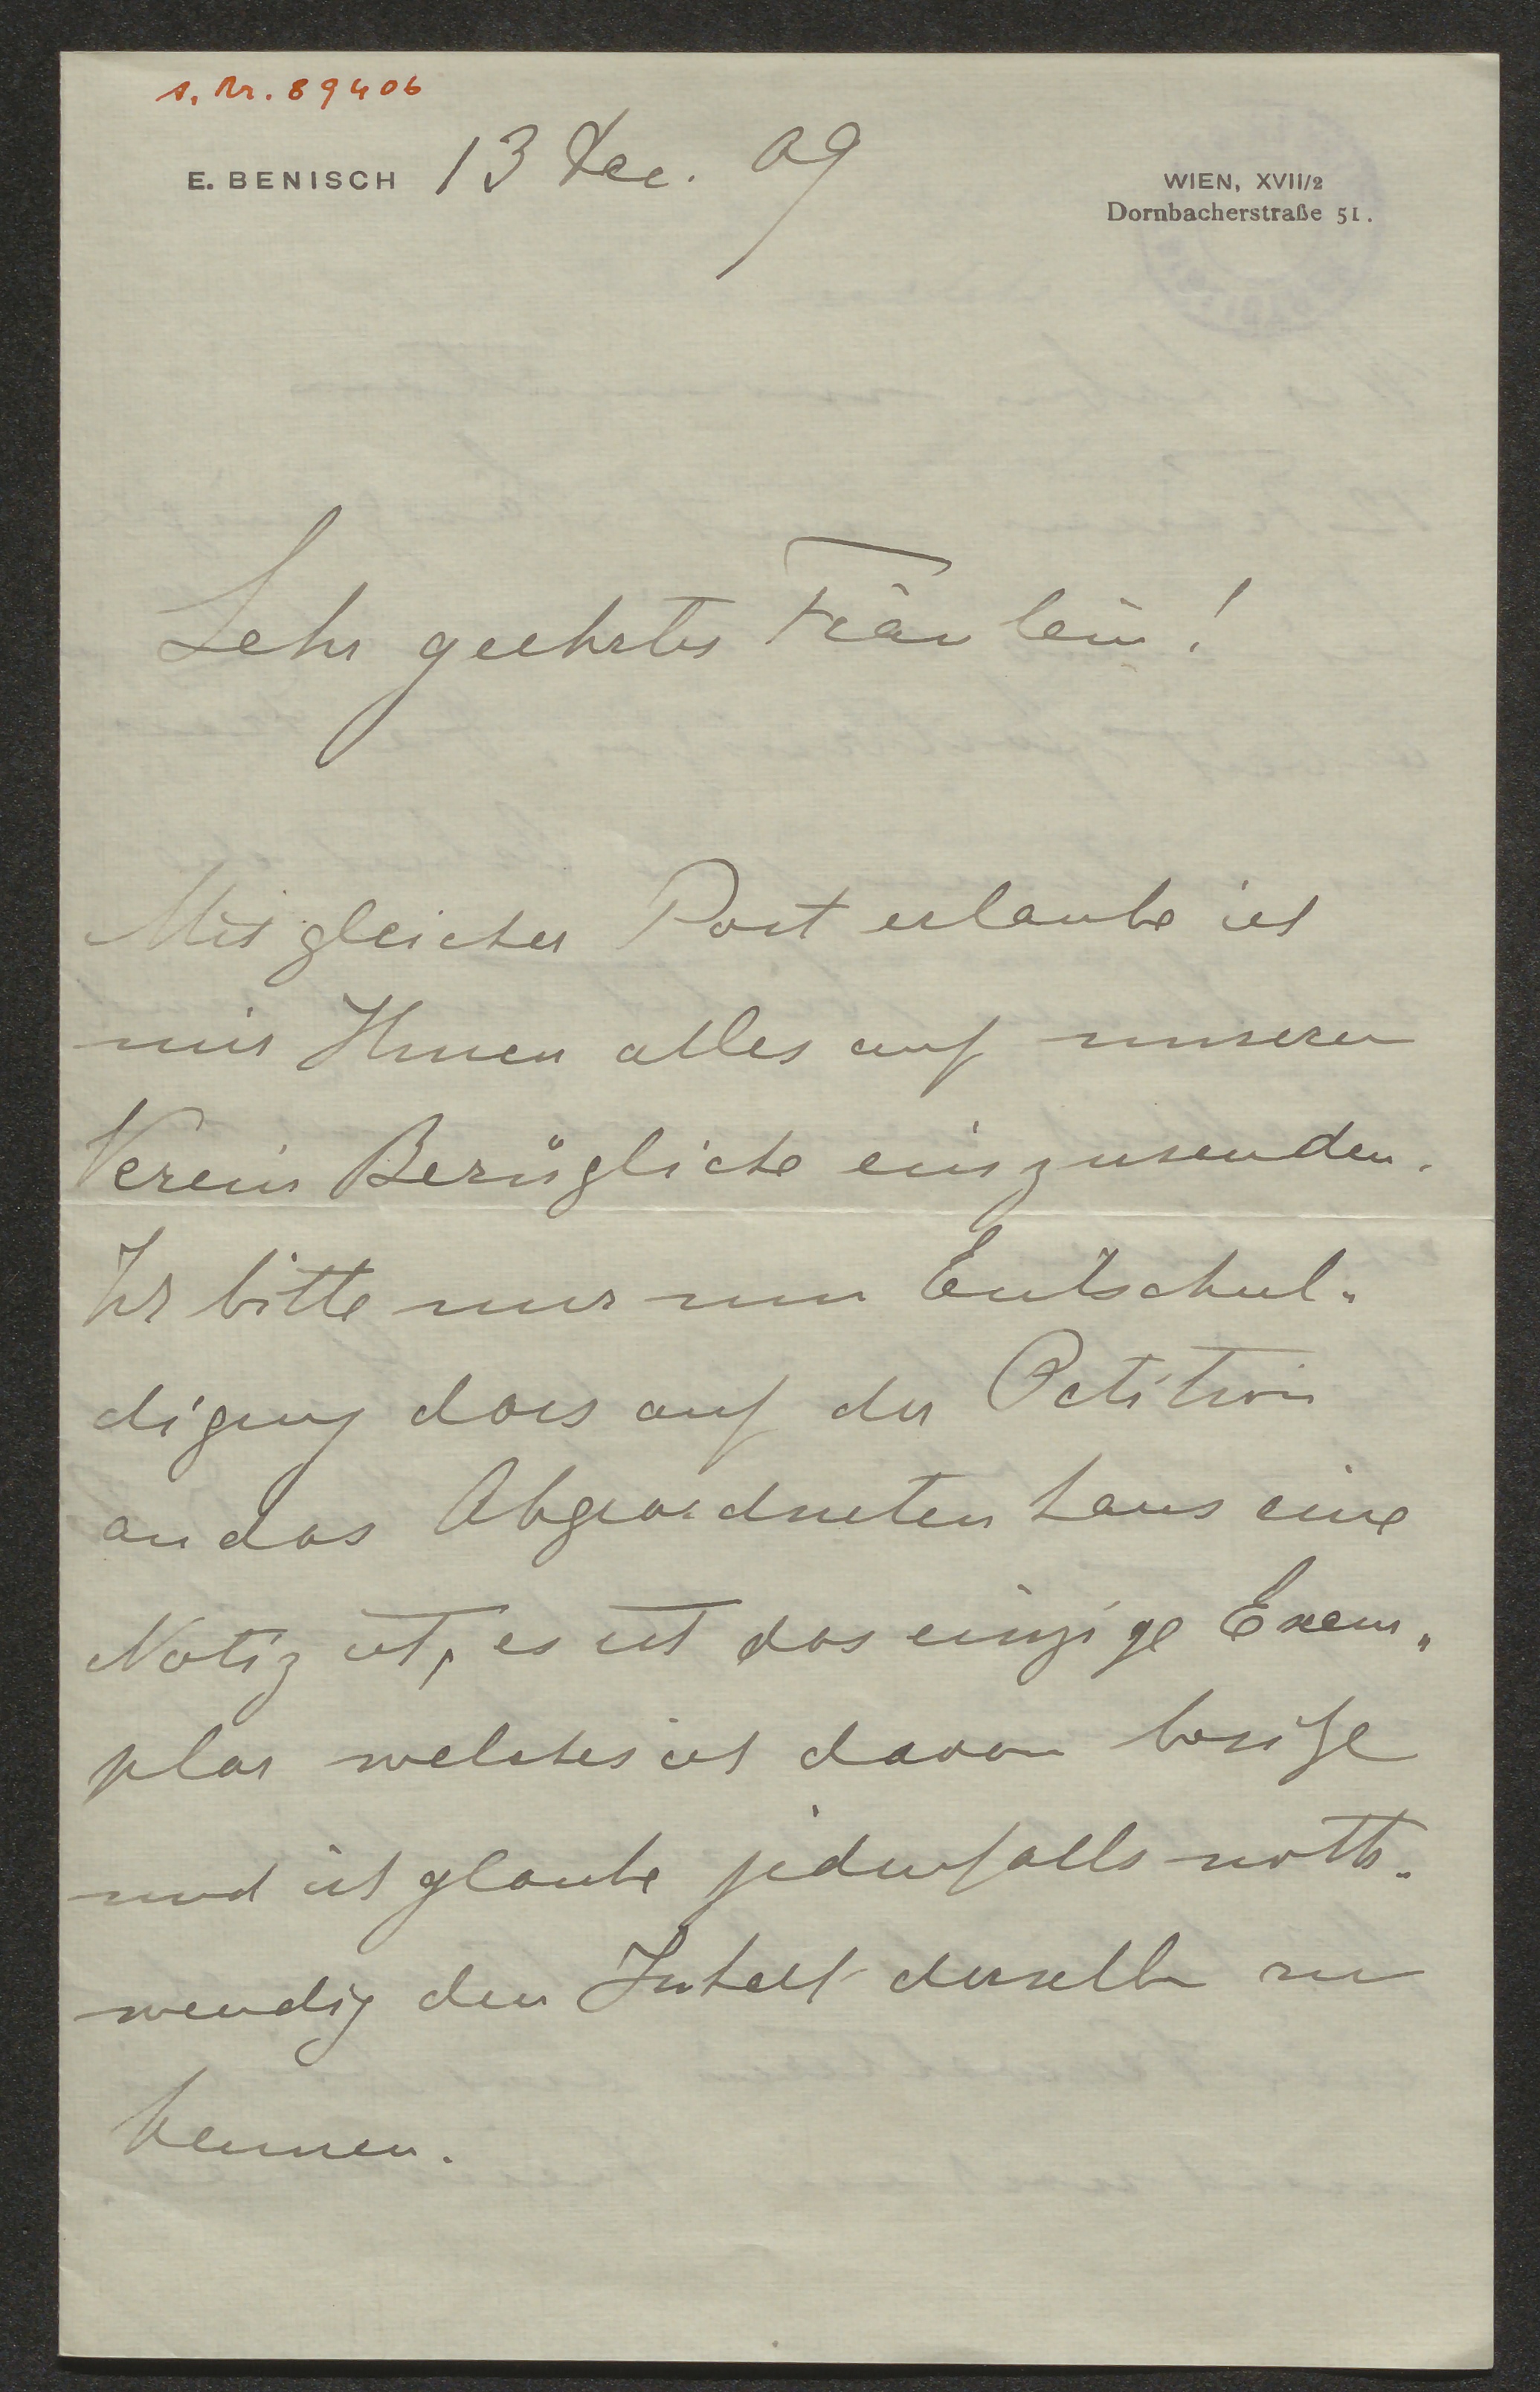 s. Nr. 89406
E. BENISCH 13 Dec. 09
WIEN, XVII/2
Dornbacherstraße 51.
Sehr geehrtes Fräulein!
Mit gleicher Post erlaube ich
mir Ihnen alles auf unseren
Verein Bezügliche einzusenden.
Ich bitte nur um Entschul-
digung dass auf der Petition
an das Abgeordnetenhaus eine
Notiz ist, es ist das einzige Exem-
plar welches ich davon besitze
und ich glaube jedenfalls noth-
wendig den Inhalt derselben zu
kennen.